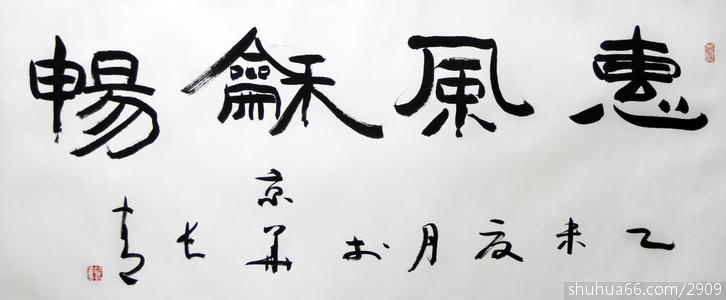 惠風龢暢
乙未夏月於京華长青
shuhua66.com/2909